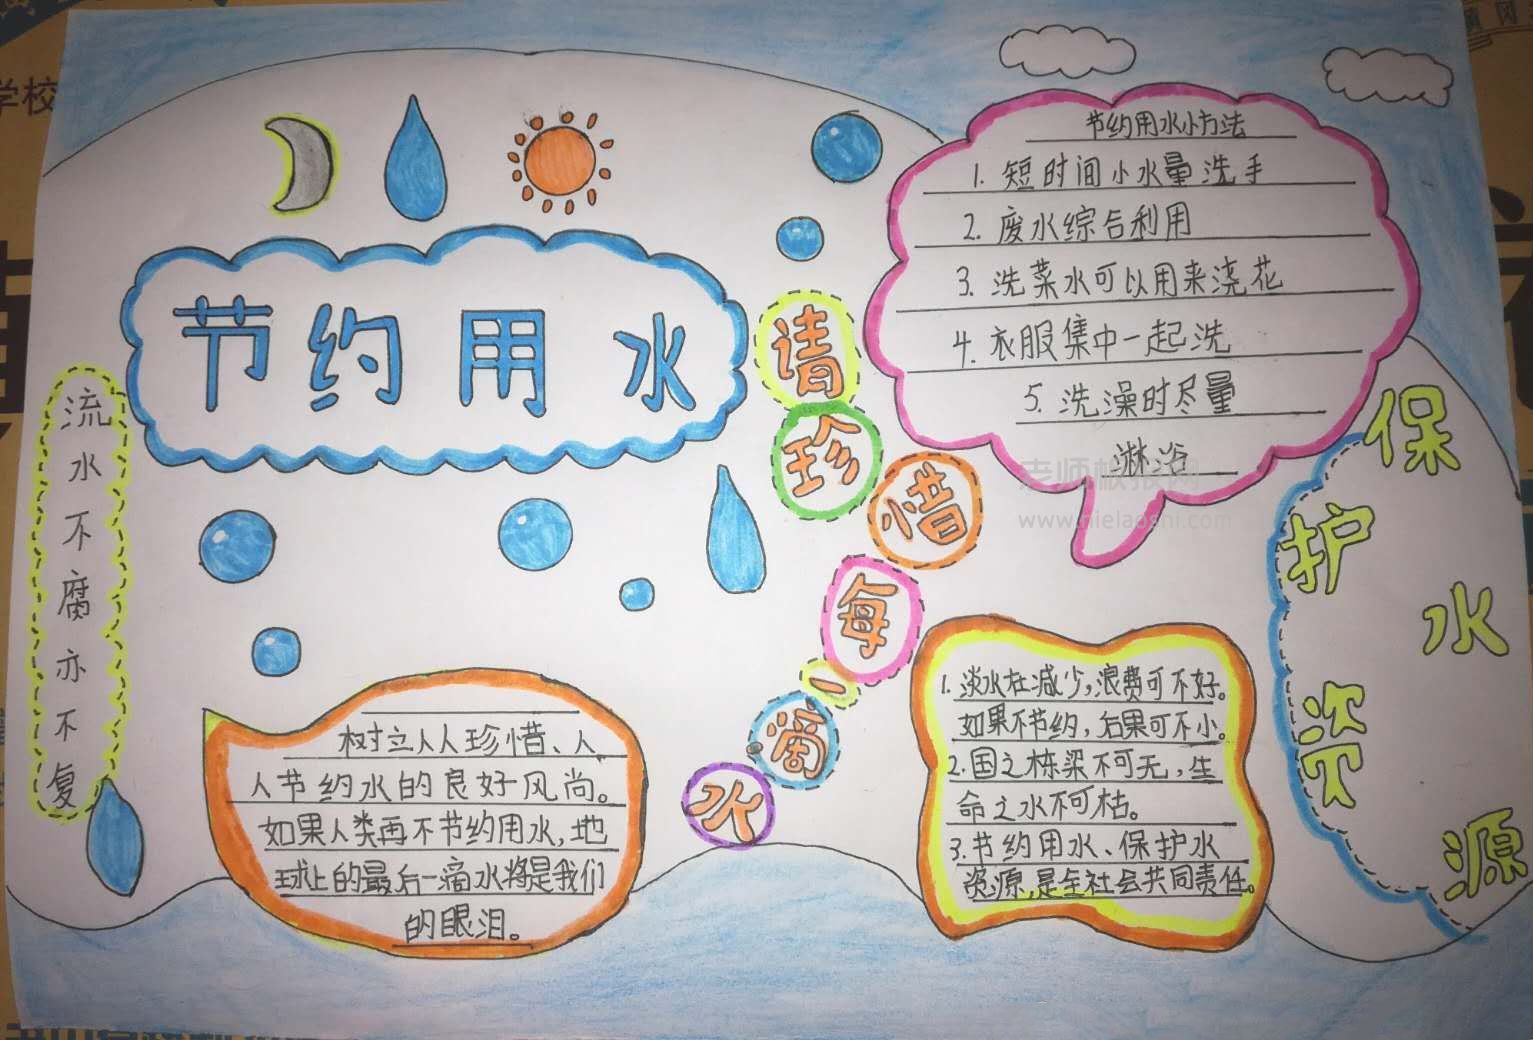 学校
节约用水
流水不腐亦不复
请珍惜每一滴水
节约用水小方法
1. 短时间小水量洗手
2. 废水综合利用
3. 洗菜水可以用来浇花
4. 衣服集中一起洗
5. 洗澡时尽量
淋浴
老师板报网
www.nielaoshi.com
保护水资源
树立人人珍惜、人
人节约水的良好风尚。
如果人类再不节约用水,地
球上的最后一滴水将是我们
的眼泪。
1. 淡水在减少,浪费可不好。
如果不节约,后果可不小。
2. 国之栋梁不可无,生
命之水不可枯。
3. 节约用水、保护水
资源,是全社会共同责任。